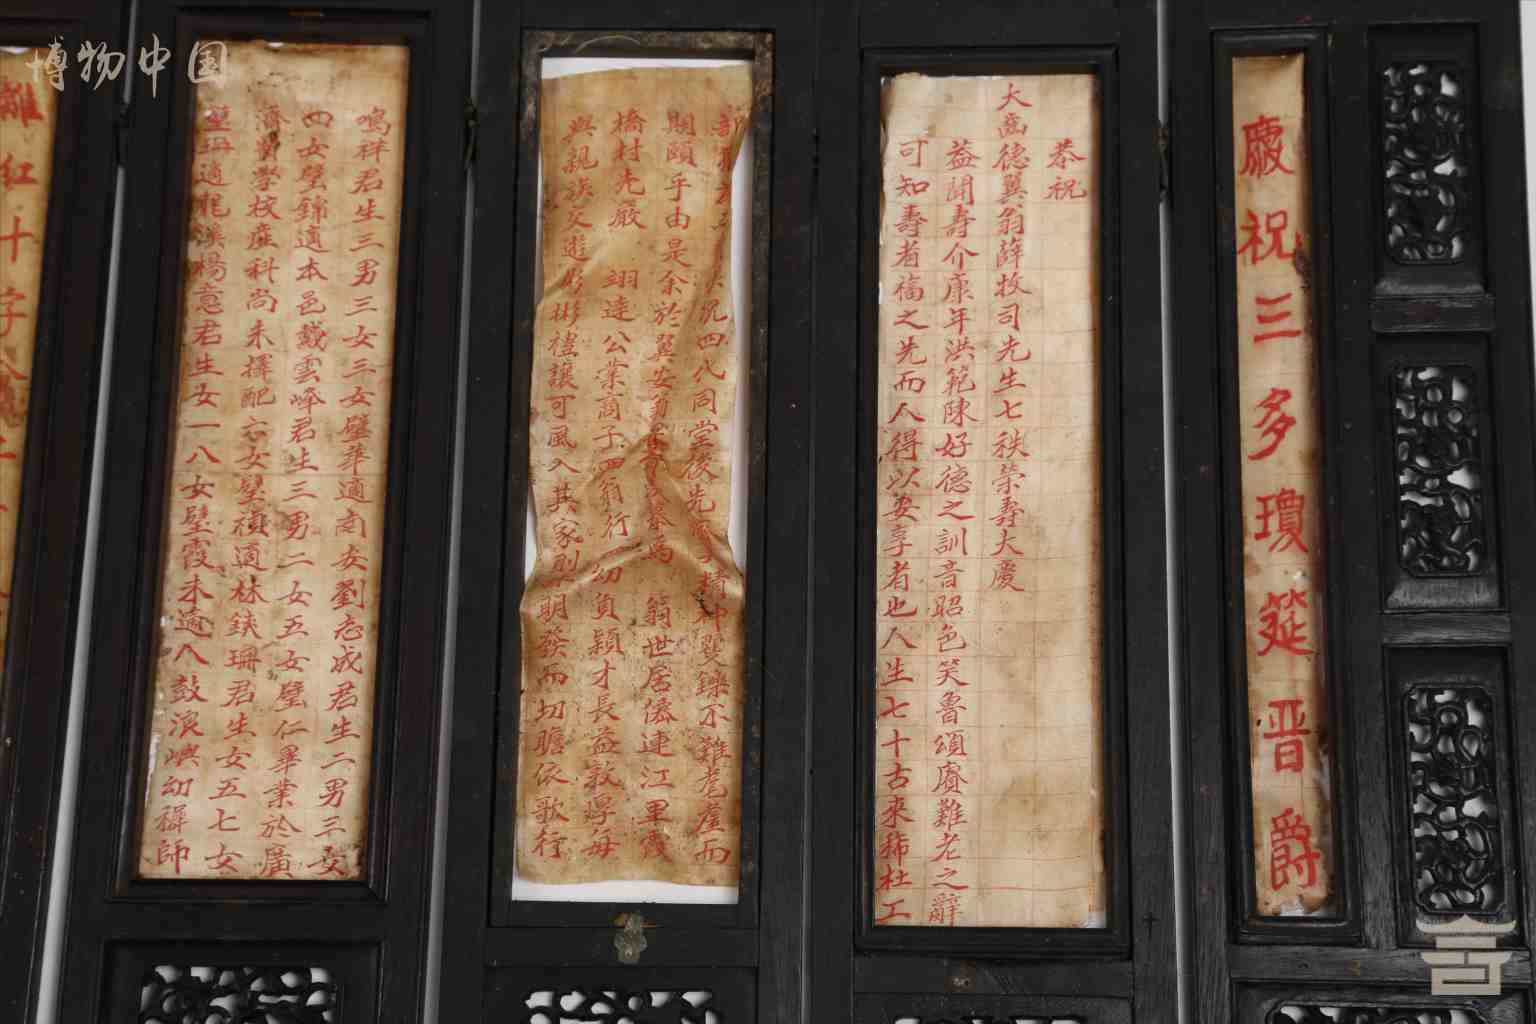 博物中国
慶祝三多瓊筵晋爵
恭祝
大啚德翼翁薛牧司先生七秩榮壽大慶
益聞壽介康年洪範陳好德之訓音昭色笑魯頌賡難老之辭
可知壽者福之先而人得以妥享者也人生七十古來稀杜工
況四代同堂後先精神矍鑠不難耄耋而
期頤乎由是余於翼安翁世居僑連江里霞
橋村先嚴翊達公業商子四翁行幼負穎才長益敦厚每
與親族交遊彬彬禮讓可風入其家則明發而切瞻依歌行
鳴祥君生三男三女三女璧華適南安劉志成君生二男三女
四女璧錦適本邑戴雲峰君生三男二女五女璧仁畢業於廣
濟醫學校產科尚未擇配六女璧禎適林鉄珊君生女五七女
適龍溪楊意君生女一八女璧霞未適八鼓浪嶼幼穉師
離紅十字